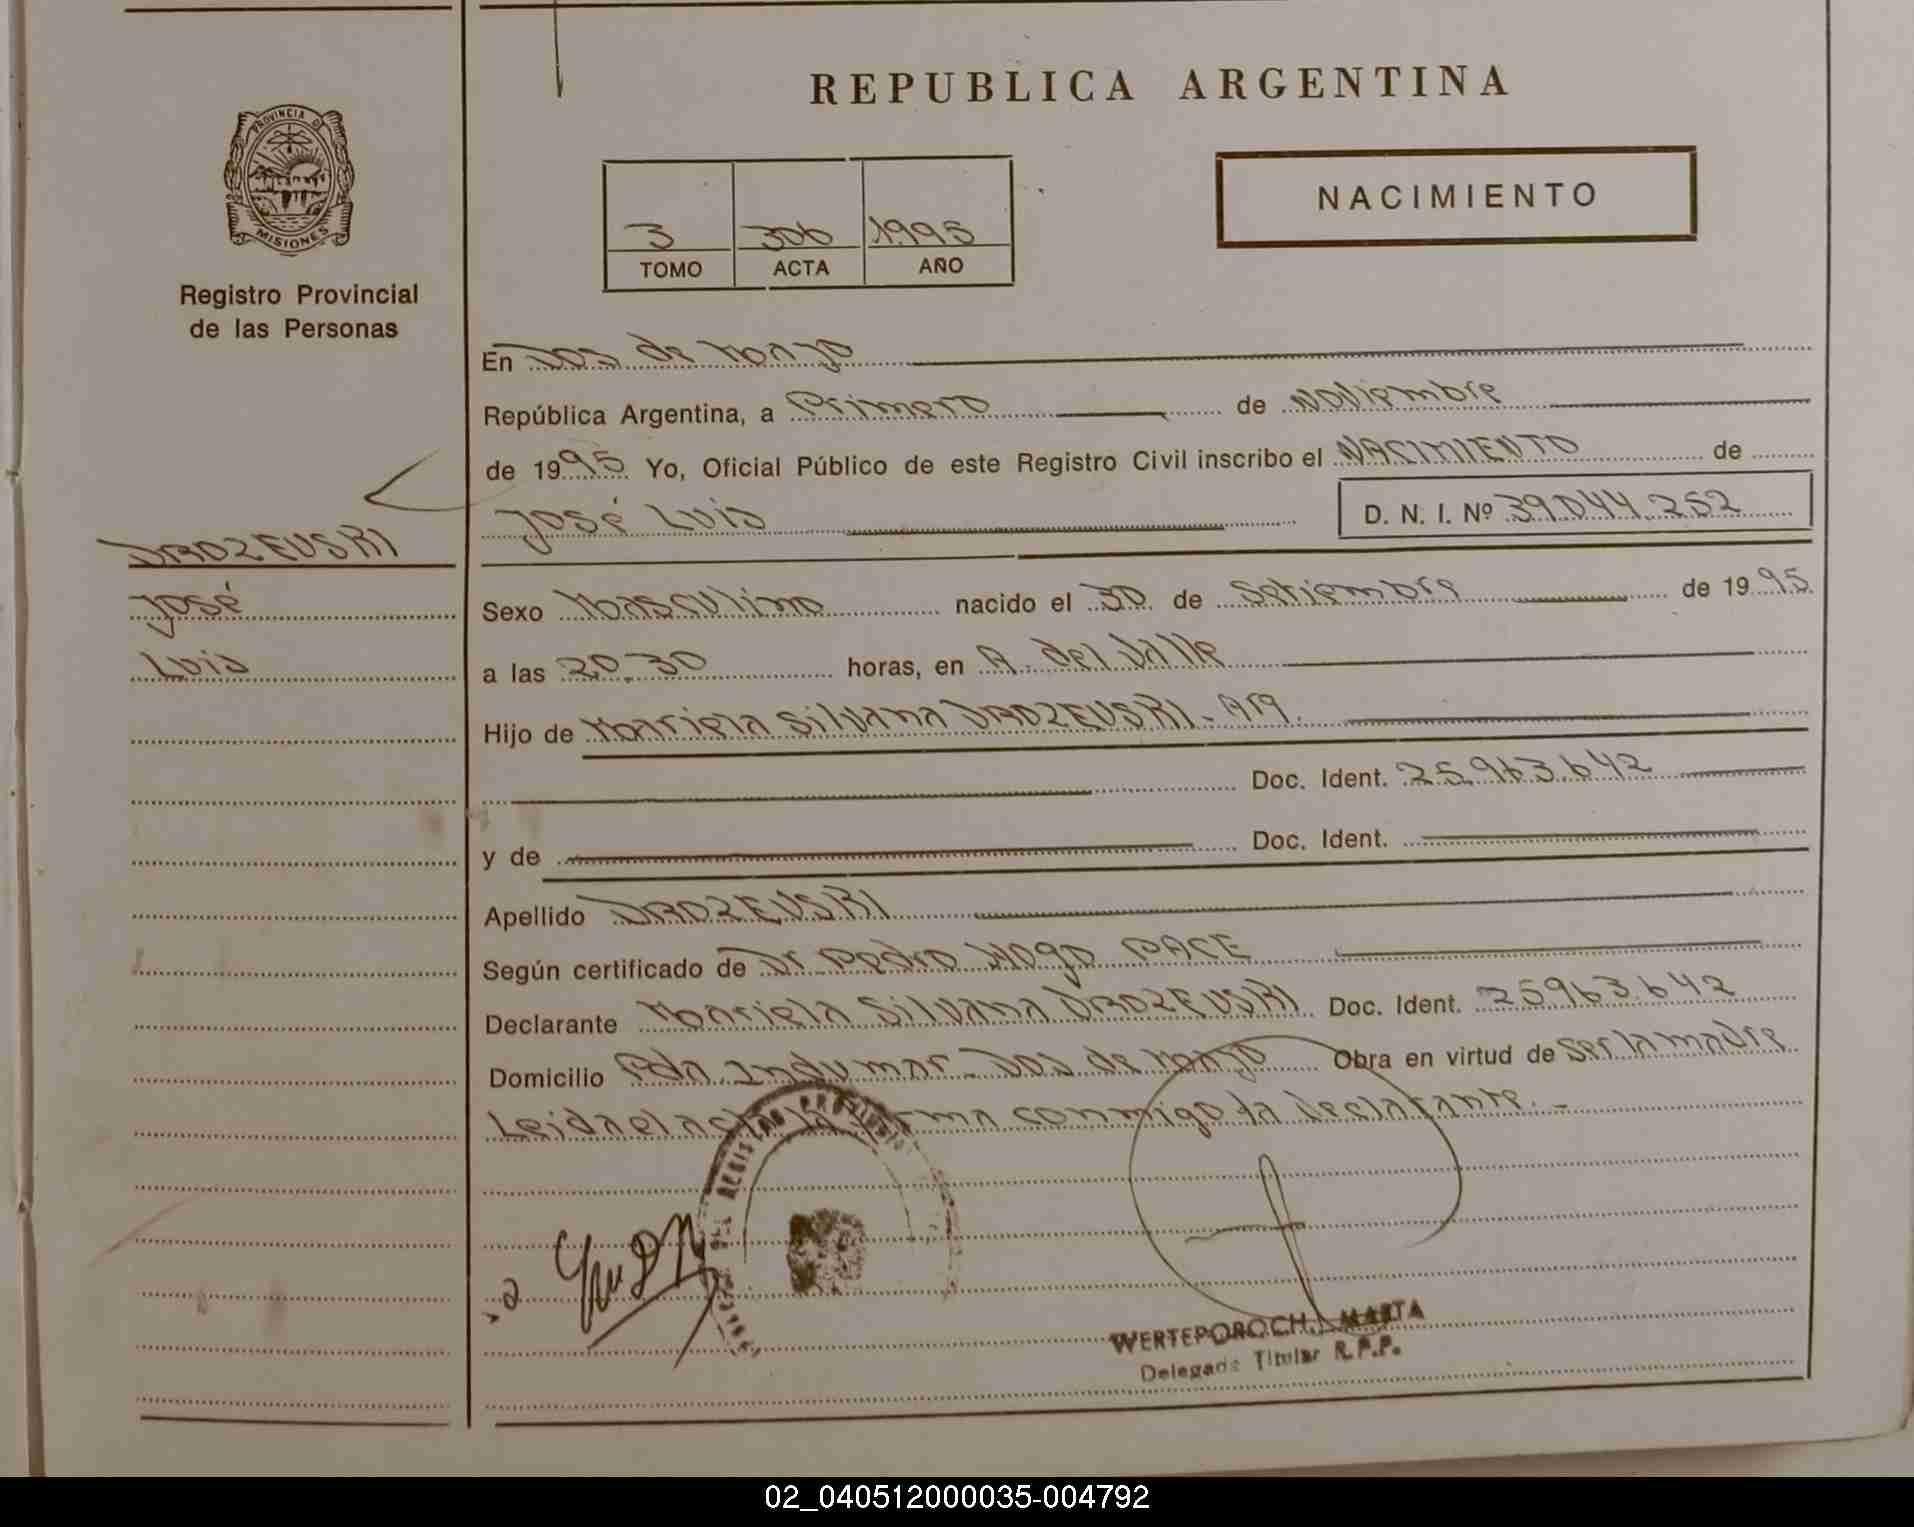 REPUBLICA ARGENTINA
PROVINCIA DE
MISIONES
Registro Provincial
de las Personas
NACIMIENTO
3 306 1995
TOMO ACTA AÑO
En Dos de Mayo
República Argentina, a Primero de Noviembre
de 1995 Yo, Oficial Público de este Registro Civil inscribo el NACIMIENTO de
José Luis D. N. I. Nº 39044.252
DROZEUSKI
José
Luis
Sexo Masculino nacido el 30 de Setiembre de 1995
a las 20.30 horas, en A. del Valle
Hijo de Mariela Silvana DROZEUSKI - Arg.
Doc. Ident. 25.963.642
y de Doc. Ident.
Apellido DROZEUSKI
Según certificado de Dr Pedro Hugo PACE
Declarante Mariela Silvana DROZEUSKI Doc. Ident. 25963.642
Domicilio Pda. Indumar - Dos de Mayo Obra en virtud de ser la madre
Leida el acta la firma conmigo la declarante.-
WERTEPOROCH, MARTA
Delegada Titular R.P.P.
02_040512000035-004792